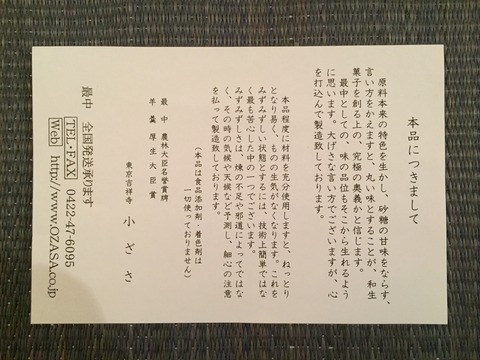 本品につきまして
原料本来の特色を生かし、砂糖の甘味をならす、
言い方をかえますと、丸い味とすることが、和生
菓子を創る上の、究極の奥義かと信じます。
最中としての、味の品位もそこから生れるよう
に思います。大げさな言い方でございますが、心
を打込んで製造致しております。
本品程度に材料を充分使用しますと、ねっとり
となり易く、ものの生気がなくなります。これを
みずみずしい状態とするには、技術上簡単ではな
く最も苦心した中の一つでございます。
みずみずしさは、煉の不足や邪道によってではな
く、その時の気候や天候など予測し、細心の注意
を払って製造致しております。
(本品は食品添加剤・着色剤は
一切使っておりません)
最中 農林大臣名誉賞牌
羊羹 厚生大臣賞
東京吉祥寺 小ざさ
最中 全国発送承ります
TEL・FAX 0422-47-6095
Web http//www.OZASA.co.jp